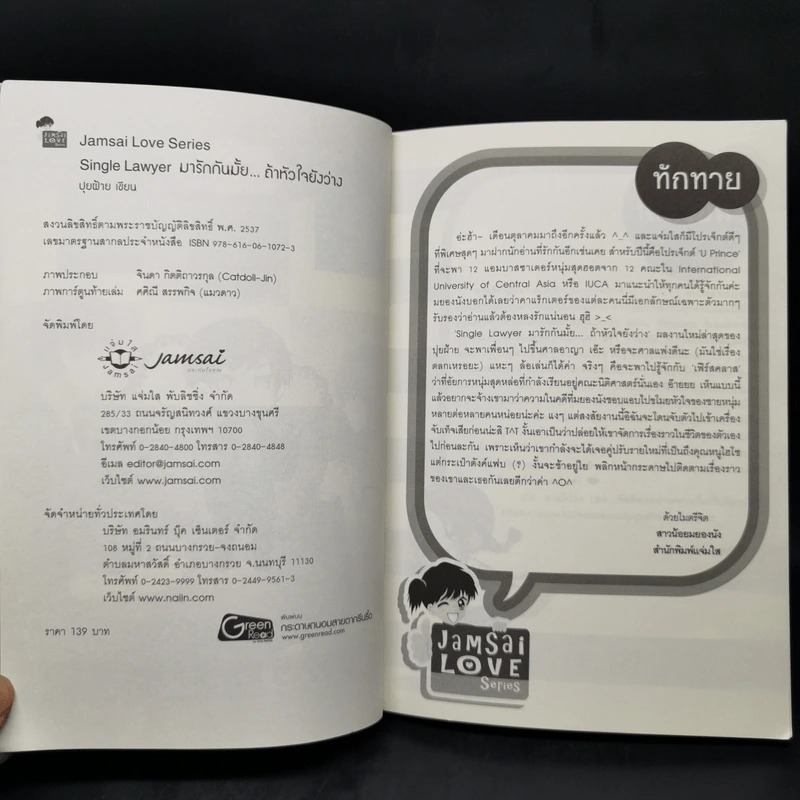 JAMSAI LOVE Series
Jamsai Love Series
Single Lawyer มารักกันมั้ย... ถ้าหัวใจยังว่าง
ปุยฝ้าย เขียน
สงวนลิขสิทธิ์ตามพระราชบัญญัติลิขสิทธิ์ พ.ศ. 2537
เลขมาตรฐานสากลประจำหนังสือ ISBN 978-616-06-1072-3
ภาพประกอบ จินดา กิตติถาวรกุล (Catdoll-Jin)
ภาพการ์ตูนท้ายเล่ม ศศิณี สรรพกิจ (แมวดาว)
จัดพิมพ์โดย
แจ่มใส Jamsai
Jamsai
บริษัท แจ่มใส พับลิชชิ่ง จำกัด
285/33 ถนนจรัญสนิทวงศ์ แขวงบางขุนศรี
เขตบางกอกน้อย กรุงเทพฯ 10700
โทรศัพท์ 0-2840-4800 โทรสาร 0-2840-4848
อีเมล editor@jamsai.com
เว็บไซต์ www.jamsai.com
จัดจำหน่ายทั่วประเทศโดย
บริษัท อมรินทร์ บุ๊ค เซ็นเตอร์ จำกัด
108 หมู่ที่ 2 ถนนบางกรวย-จงถนอม
ตำบลมหาสวัสดิ์ อำเภอบางกรวย จ.นนทบุรี 11130
โทรศัพท์ 0-2423-9999 โทรสาร 0-2449-9561-3
เว็บไซต์ www.naiin.com
ราคา 139 บาท
Green Read
พิมพ์บน
กระดาษถนอมสายตากรีนรี้ด
www.greenread.com
ทักทาย
อ่ะฮ้า~ เดือนตุลาคมมาถึงอีกครั้งแล้ว ^_^ และแจ่มใสก็มีโปรเจ็กต์ดีๆ
ที่พิเศษสุดๆ มาฝากนักอ่านที่รักกันอีกเช่นเคย สำหรับปีนี้คือโปรเจ็กต์ 'U Prince'
ที่จะพา 12 แอมบาสซาเดอร์หนุ่มสุดฮอตจาก 12 คณะใน International
University of Central Asia หรือ IUCA มาแนะนำให้ทุกคนได้รู้จักกันค่ะ
มยองนังบอกได้เลยว่าคาแร็กเตอร์ของแต่ละคนนี่มีเอกลักษณ์เฉพาะตัวมากๆ
รับรองว่าอ่านแล้วต้องหลงรักแน่นอน ฮุฮิ >_<
'Single Lawyer มารักกันมั้ย... ถ้าหัวใจยังว่าง' ผลงานใหม่ล่าสุดของ
ปุยฝ้าย จะพาเพื่อนๆ ไปขึ้นศาลอาญา เอ๊ะ หรือจะศาลแพ่งดีนะ (มันใช่เรื่อง
ตลกเหรอยะ) แหะๆ ล้อเล่นก็ได้ค่า จริงๆ คือจะพาไปรู้จักกับ 'เฟิร์สคลาส'
ว่าที่อัยการหนุ่มสุดหล่อที่กำลังเรียนอยู่คณะนิติศาสตร์นั่นเอง อ๊ายยย เห็นแบบนี้
แล้วอยากจะจ้างเขามาว่าความในคดีที่มยองนังชอบแอบไปขโมยหัวใจของชายหนุ่ม
หลายต่อหลายคนหน่อยน่ะค่ะ แงๆ แต่สงสัยงานนี้อีฉันจะโดนจับตัวไปเข้าเครื่อง
จับเท็จเสียก่อนน่ะสิ T^T งั้นเอาเป็นว่าปล่อยให้เขาจัดการเรื่องราวในชีวิตของตัวเอง
ไปก่อนละกัน เพราะเห็นว่าเขากำลังจะได้เจอคู่ปรับรายใหม่ที่เป็นถึงคุณหนูไฮโซ
แต่กระเป๋าตังค์แฟบ (?) งั้นจะช้าอยู่ไย พลิกหน้ากระดาษไปติดตามเรื่องราว
ของเขาและเธอกันเลยดีกว่าค่า ^O^
ด้วยไมตรีจิต
สาวน้อยมยองนัง
สำนักพิมพ์แจ่มใส
JAMSAI
LOVE
Series